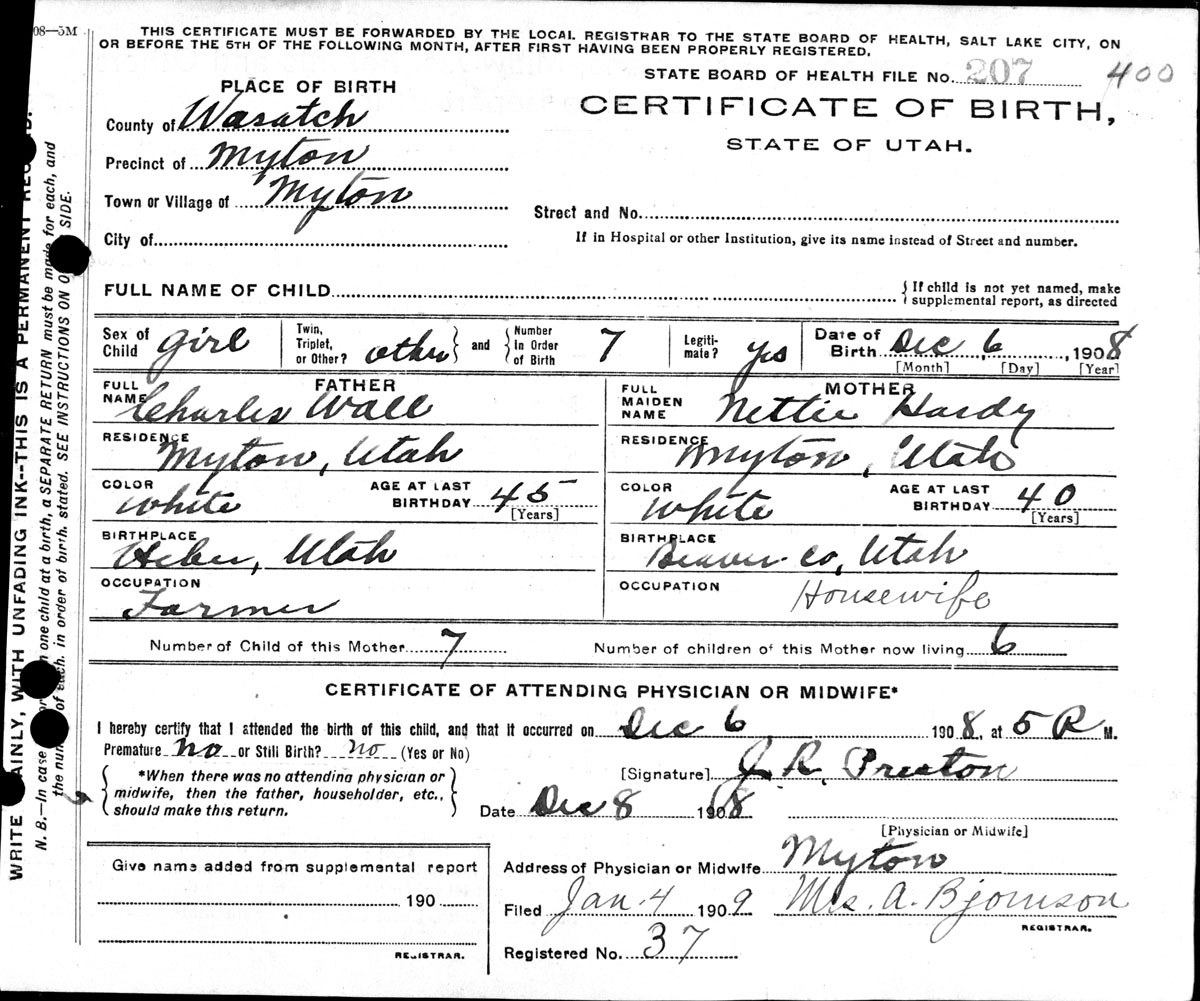 08—5M
THIS CERTIFICATE MUST BE FORWARDED BY THE LOCAL REGISTRAR TO THE STATE BOARD OF HEALTH, SALT LAKE CITY, ON
OR BEFORE THE 5TH OF THE FOLLOWING MONTH, AFTER FIRST HAVING BEEN PROPERLY REGISTERED.
STATE BOARD OF HEALTH FILE No. 207 400
PLACE OF BIRTH
CERTIFICATE OF BIRTH,
STATE OF UTAH.
County of Wasatch
Precinct of Myton
Town or Village of Myton
Street and No.
City of
If in Hospital or other Institution, give its name instead of Street and number.
FULL NAME OF CHILD
{ If child is not yet named, make
supplemental report, as directed
Sex of Child girl
Twin, Triplet, or Other? other } and { Number In Order of Birth 7
Legiti- mate? yes
Date of Birth Dec 6, 1908
[Month] [Day] [Year]
FATHER
FULL NAME Charles Wall
RESIDENCE Myton, Utah
COLOR White AGE AT LAST BIRTHDAY 45 [Years]
BIRTHPLACE Heber, Utah
OCCUPATION Farmer
MOTHER
FULL MAIDEN NAME Nettie Hardy
RESIDENCE Myton, Utah
COLOR White AGE AT LAST BIRTHDAY 40 [Years]
BIRTHPLACE Beaver Co, Utah
OCCUPATION Housewife
Number of Child of this Mother 7 Number of children of this Mother now living 6
CERTIFICATE OF ATTENDING PHYSICIAN OR MIDWIFE*
I hereby certify that I attended the birth of this child, and that it occurred on Dec 6 1908, at 5 P M.
Premature no or Still Birth? no (Yes or No)
{ *When there was no attending physician or
midwife, then the father, householder, etc.,
should make this return. }
[Signature] J. R. Preston
Date Dec 8 1908
[Physician or Midwife]
Give name added from supplemental report
190
REGISTRAR.
Address of Physician or Midwife Myton
Filed Jan. 4 1909 Mrs. A. Bjornson
REGISTRAR.
Registered No. 37
WRITE PLAINLY, WITH UNFADING INK--THIS IS A PERMANENT
N. B.—In case one child at a birth, a SEPARATE RETURN must be made for each, and
the of each, in order of birth, stated. SEE INSTRUCTIONS ON SIDE.